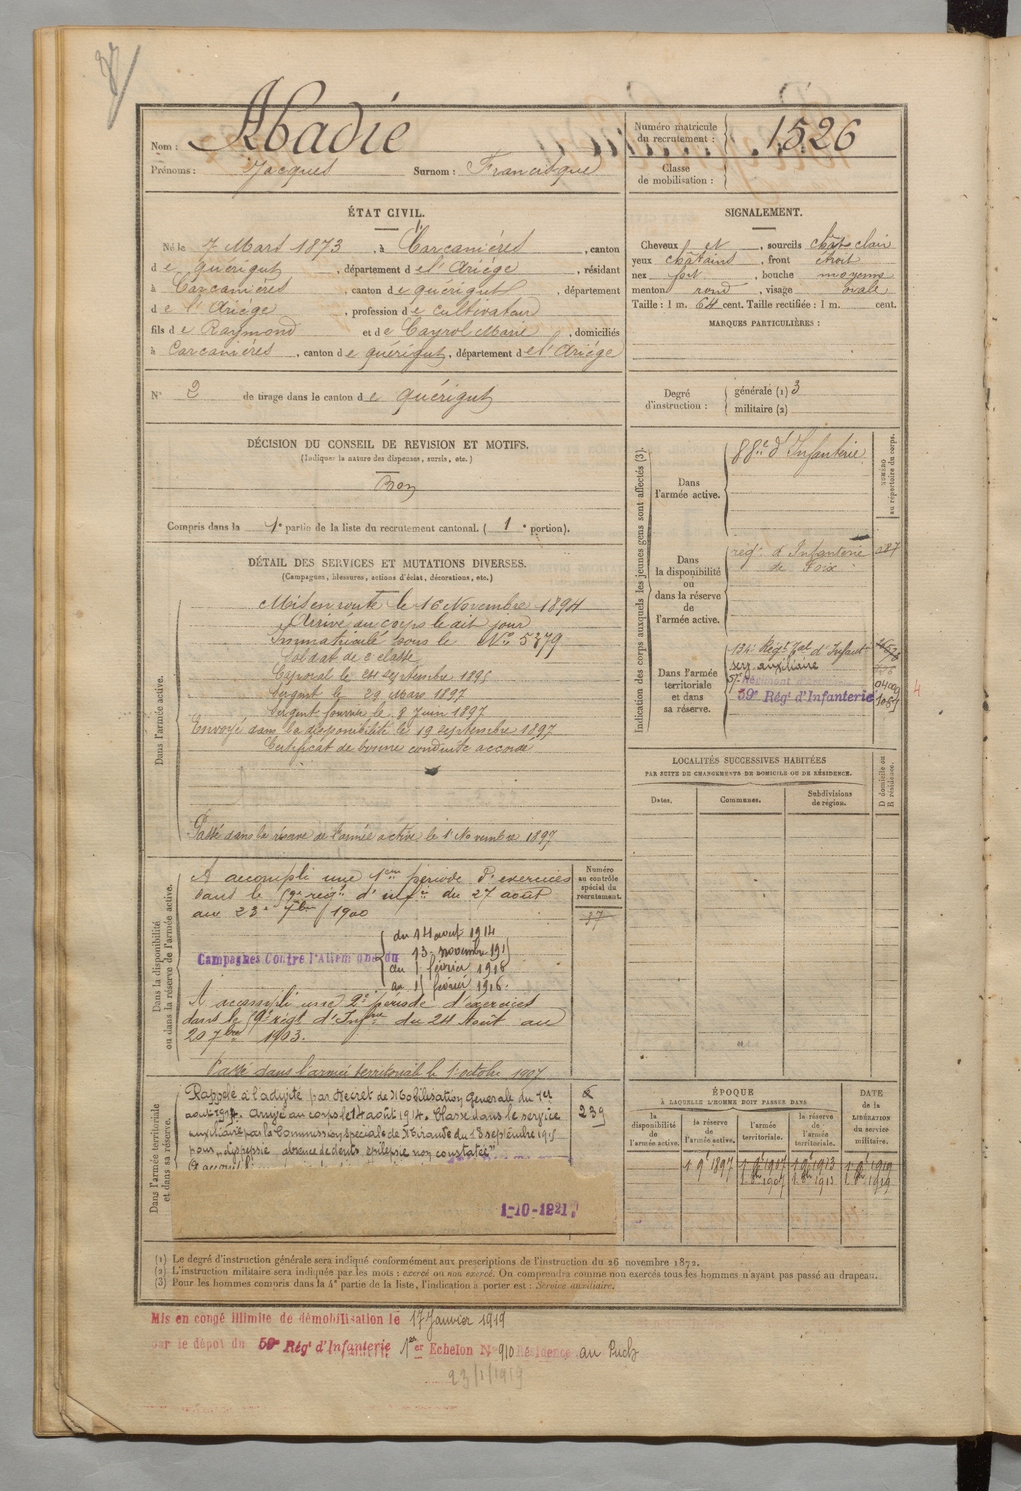 Nom : Abadie
Prénoms : Jacques Surnom : Francisque
Numéro matricule du recrutement : 1526
Classe de mobilisation :
ÉTAT CIVIL.
Né le 7 Mars 1873, à Carcanières, canton
de Quérigut, département de l'Ariége, résidant
à Carcanières, canton de Quérigut, département
de l'Ariége, profession de cultivateur
fils de Raymond et de Cayrol Marie, domiciliés
à Carcanières, canton de Quérigut, département de l'Ariége
N° 2 de tirage dans le canton de Quérigut
SIGNALEMENT.
Cheveux et, sourcils chât. clair
yeux châtains, front étroit
nez fort, bouche moyenne
menton rond, visage ovale
Taille : 1 m. 64 cent. Taille rectifiée : 1 m. cent.
MARQUES PARTICULIÈRES :
Degré d'instruction :
générale (1) 3
militaire (2)
DÉCISION DU CONSEIL DE REVISION ET MOTIFS.
(Indiquer la nature des dispenses, sursis, etc.)
Bon
Compris dans la 1e partie de la liste du recrutement cantonal. (1e portion).
DÉTAIL DES SERVICES ET MUTATIONS DIVERSES.
(Campagnes, blessures, actions d'éclat, décorations, etc.)
Dans l'armée active.
Mis en route le 16 Novembre 1894
Arrivé au corps le dit jour
Immatriculé sous le No 5379
Soldat de 2e classe
Caporal le 24 septembre 1895
Sergent le 29 Mars 1897
Sergent fourrier le 8 Juin 1897
Envoyé dans la disponibilité le 19 septembre 1897
Certificat de bonne conduite accordé
Passé dans la réserve de l'armée active le 1 Novembre 1897
Dans la disponibilité ou dans la réserve de l'armée active.
Numéro au contrôle spécial du recrutement.
37
A accompli une 1ère période d'exercices
dans le 59e régt d'infie du 27 août
au 23 7bre 1900
Campagnes Contre l'Allemagne du
du 14 août 1914
13 novembre 191
du 1 février 1916
au février 1916.
A accompli une 2e période d'exercices
dans le 59e régt d'Infrie du 24 Août au
20 7bre 1903.
Passé dans l'armée territoriale le 1 octobre 1907
Dans l'armée territoriale et dans sa réserve.
239
Rappelé à l'activité par Décret de Mobilisation Générale du 1er
août 1914. Arrivé au corps le 14 août 1914. Classé dans le service
auxiliaire par la Commission spéciale de Mirande du 18 septembre 1915
pour "dyspepsie absence de dents épilepsie non constatée"
1-10-1921
Indication des corps auxquels les jeunes gens sont affectés (3).
NUMÉRO au répertoire du corps.
Dans l'armée active.
88e d'Infanterie
Dans la disponibilité ou dans la réserve de l'armée active.
régt d'Infanterie
de Foix
287
Dans l'armée territoriale et dans sa réserve.
134e Régt Tal d'Infant
serv. auxiliaire
59e Rég't d'Infanterie
4
LOCALITÉS SUCCESSIVES HABITÉES
PAR SUITE DE CHANGEMENTS DE DOMICILE OU DE RÉSIDENCE.
Dates. Communes. Subdivisions de région. D domicile ou R résidence.
ÉPOQUE
À LAQUELLE L'HOMME DOIT PASSER DANS
DATE de la LIBÉRATION du service militaire.
la disponibilité de l'armée active.
la réserve de l'armée active.
l'armée territoriale.
la réserve de l'armée territoriale.
1 9e 1897
1 8e 1907
1 9e 1913
1 9e 1919
(1) Le degré d'instruction générale sera indiqué conformément aux prescriptions de l'instruction du 26 novembre 1872.
(2) L'instruction militaire sera indiquée par les mots : exercé ou non exercé. On comprendra comme non exercés tous les hommes n'ayant pas passé au drapeau.
(3) Pour les hommes compris dans la 4e partie de la liste, l'indication à porter est : Service auxiliaire.
Mis en congé illimité de démobilisation le 17 Janvier 1919
par le dépôt du 59e Rég't d'Infanterie 1er Echelon N° 910 Résidence au Puch
23/1/1919